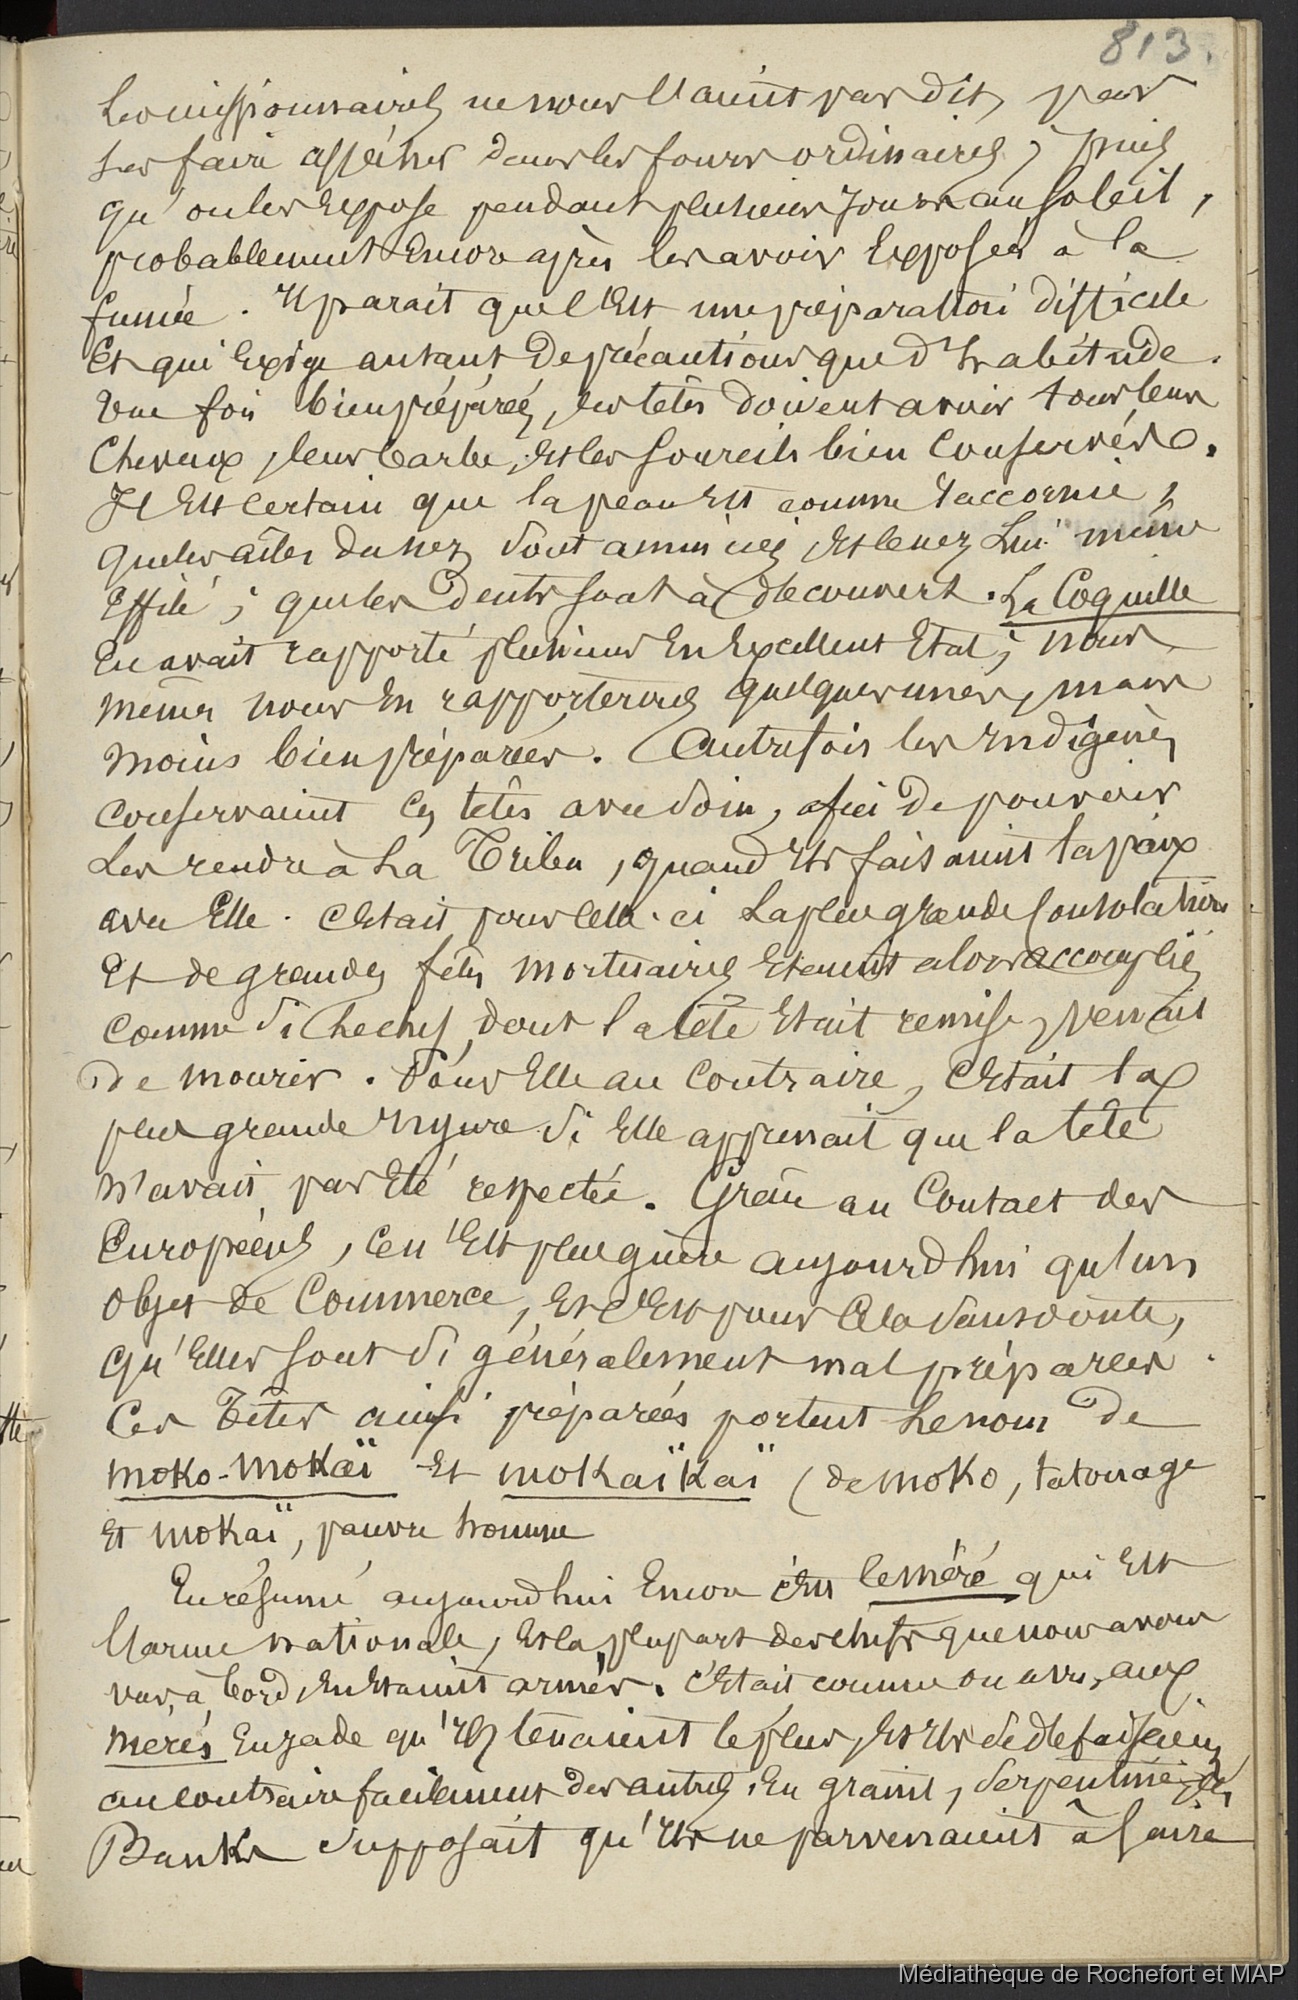 813.
Les missionnaires ne nous l'avaient pas dit, par
les faire assécher dans les fours ordinaires; puis
qu'on les expose pendant plusieurs jours au soleil,
probablement encore après les avoir exposées à la
fumée. Il parait que c'est une préparation difficile
et qui exige autant de précautions que d'habitude.
Une fois bien préparée, les têtes doivent avoir tous leurs
cheveux, leur barbe, et les sourcils bien conservés.
Il est certain que la peau est comme raccornie,
que les aîles du nez sont amincies, et le nez lui même
effilé; que les dents sont à découvert. La Coquille
en avait rapporté plusieurs en excellent état; nous
mêmes nous en rapporterons quelques unes, mais
moins bien préparées. Autrefois les indigènes
conservaient ces têtes avec soin, afin de pouvoir
les rendre à la Tribu, quand ils faisaient la paix
avec elle. C'était pour celle-ci la plus grande consolation
et de grandes fêtes mortuaires étaient alors accomplies
comme si le chef, dont la tête était remise, venait
de mourir. Pour elle au contraire, c'était la
plus grande injure si elle apprenait que la tête
n'avait pas été respectée. Grâce au contact des
Européens, ce n'est plus guère aujourd'hui qu'un
objet de commerce, et c'est pour cela sans doute,
qu'elles sont si généralement mal préparées.
Ces têtes ainsi préparées portent le nom de
moko-mokaï et mokaïkaï (de moko, tatouage
et mokaï, pauvre homme
En résumé aujourd'hui encore c'est le méré qui est
l'arme nationale, et la plupart des chefs que nous avons
vus à bord, en étaient armés. C'était comme on a vu, aux
mérés en jade qu'ils tenaient le plus, et ils se défaisaient
au contraire facilement des autres, en granit, serpentine, etc
Banks supposait qu'ils ne parvenaient à faire
Médiathèque de Rochefort et MAP